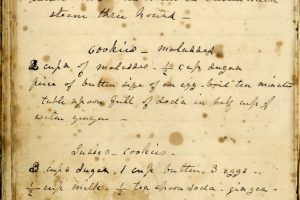 steam three hours –
Cookies – molasses
2 cups of molasses. ½ cup sugar
piece of butter size of an egg. boil ten minutes
table spoon full of soda in half cup of
water ginger –
cookies –
2 cups sugar. 1 cup butter. 3 eggs.
½ cup milk. ½ tea spoon soda. ginger –